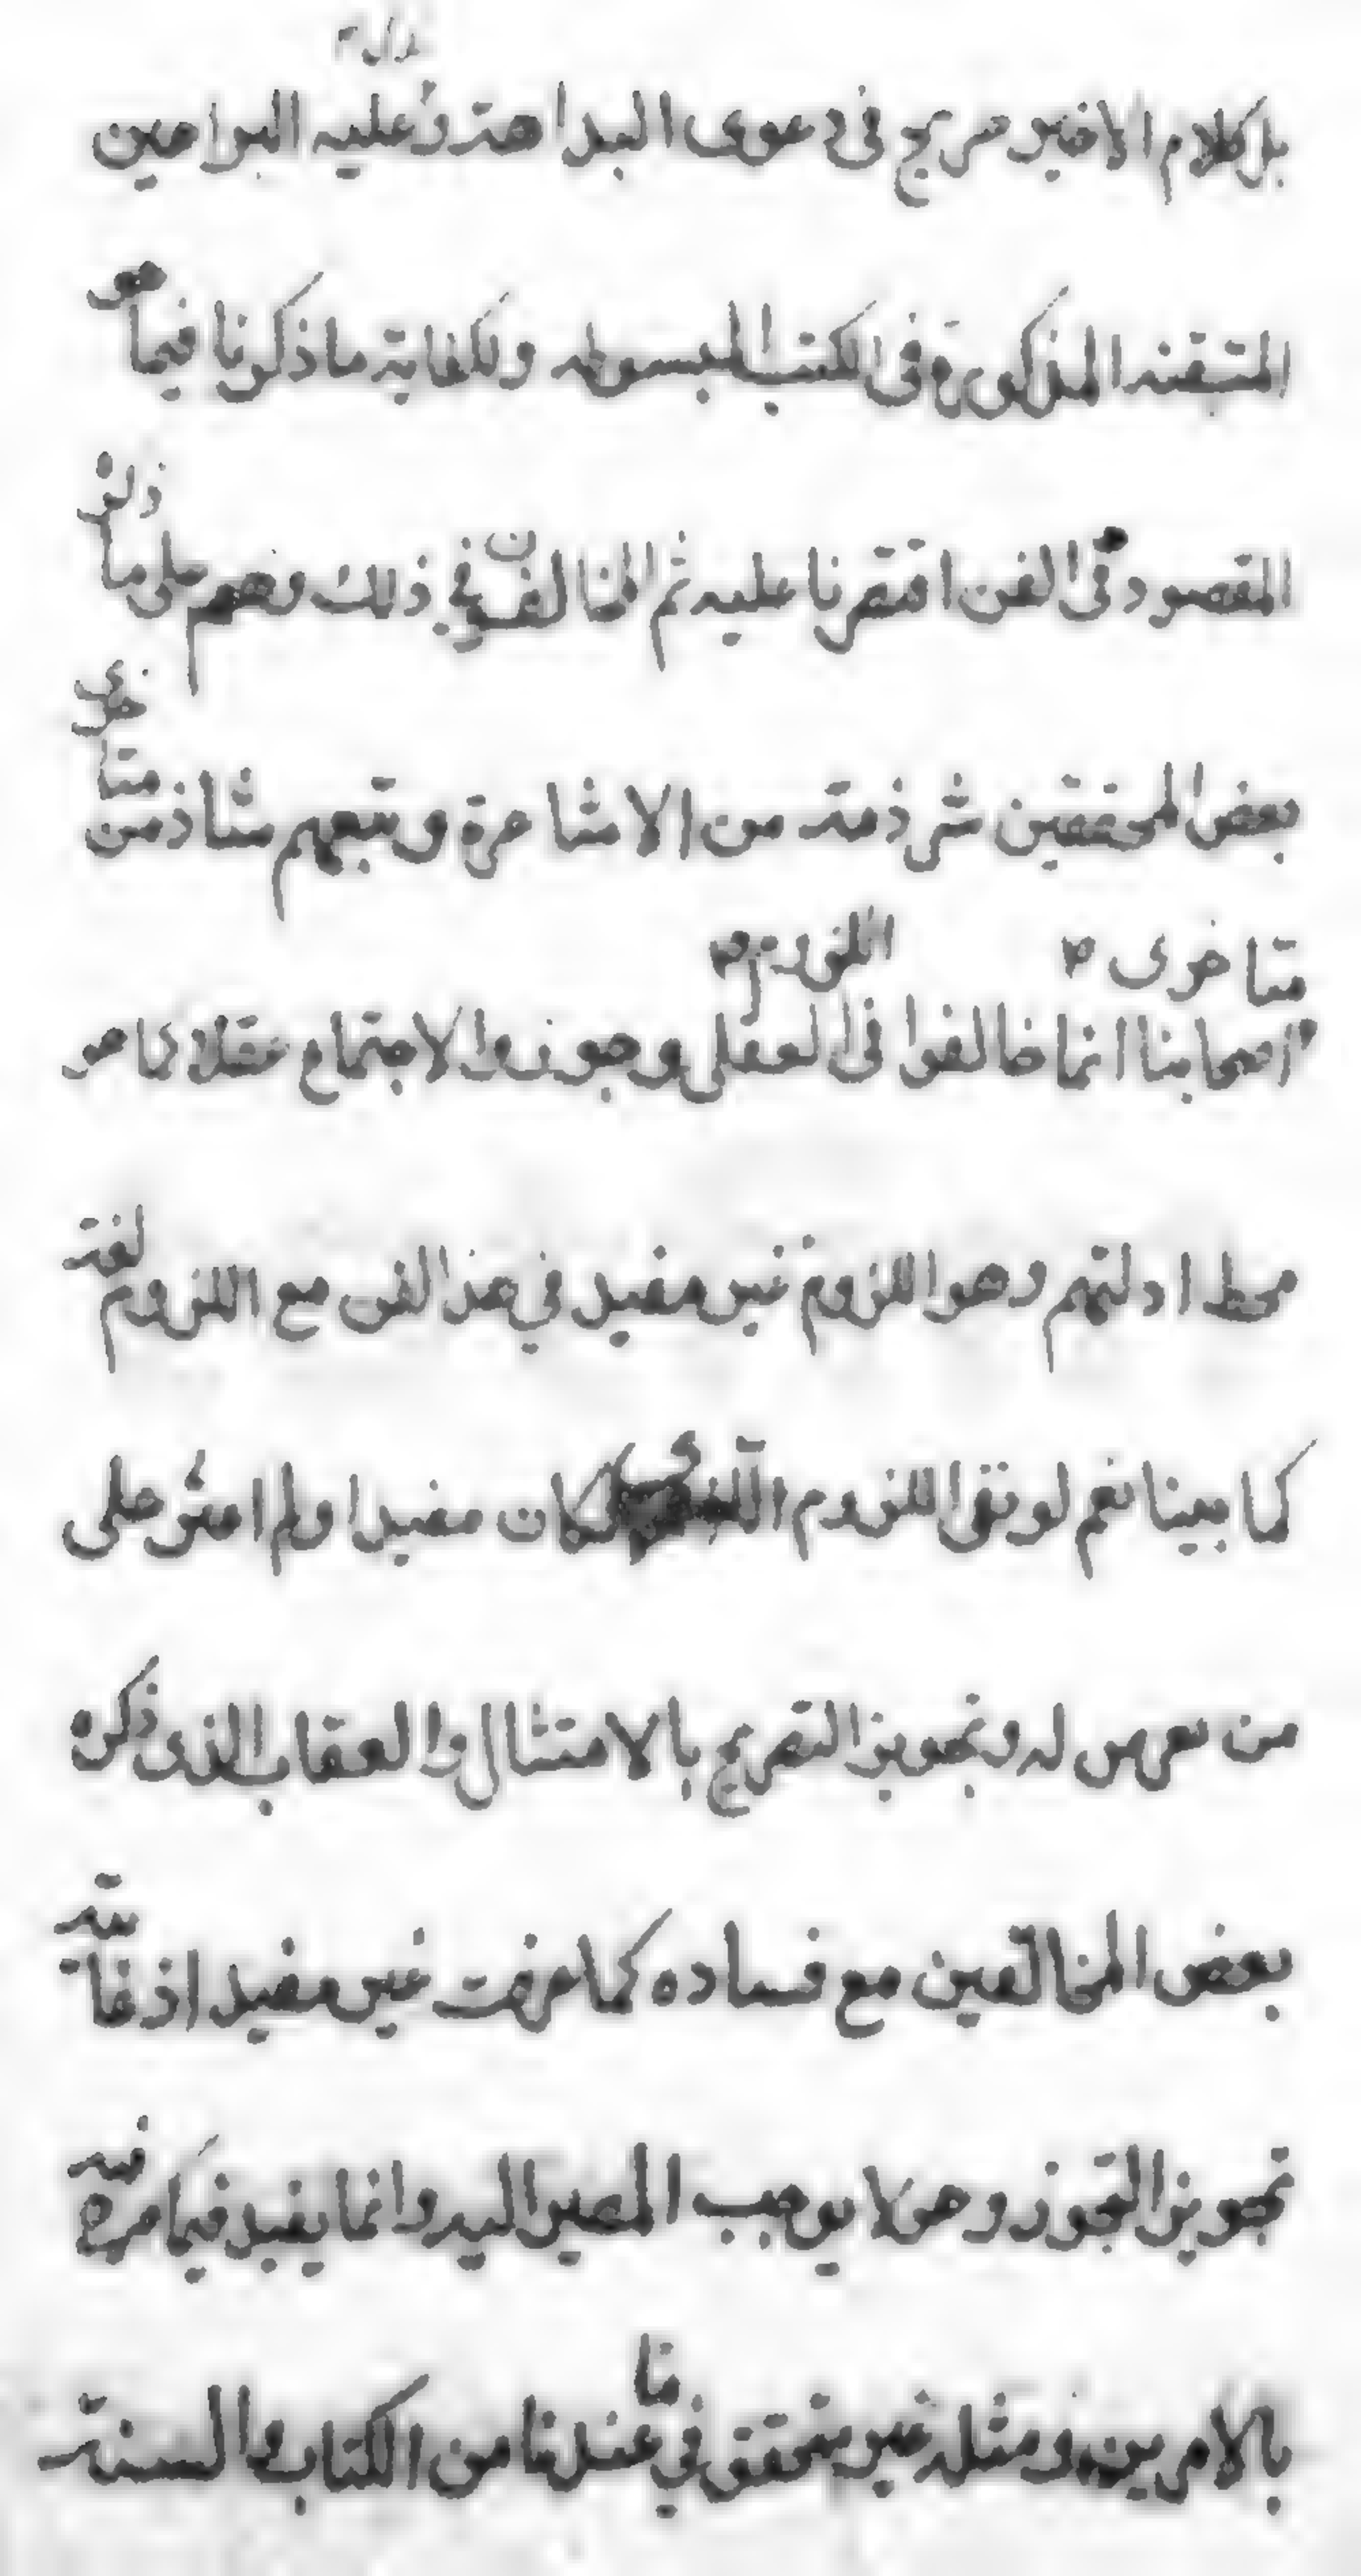 بل كلام الاخير صريح فى دعوى البداهة و عليه البراهين
المتقنه المذكوره فى الكتب المبسوطه ولكفاية ما ذكرنا فيما هو
المقصود فى الفن اقتصرنا عليه ثم المخالفون فى ذلك وفهم على ما ذكره
بعض المحققين شرذمة من الاشاعرة وتبعهم شاذ من متأخرى
متاخرى
اللزوم
اصحابنا انما خالفوا فى العقلى وجوزوا الاجتماع عقلا كما هو
محط ادلتهم وهو اللزوم غير مفيد فى هذا الفن مع اللزوم لغة
كما بينا نعم لو نفى اللزوم لكان مفيدا ولم اعثر على
من تعرض له وتجويز التصريح بالامتثال والعقاب الذى ذكره
بعض المخالفين مع فساده كما عرفت غير مفيد اذ غايته
تجويز التجوز وهو لا يوجب المصير اليه وانما يفيد فيما امر فيه
بالامرين ومثله غير متحقق فى عندنا من الكتاب والسنة